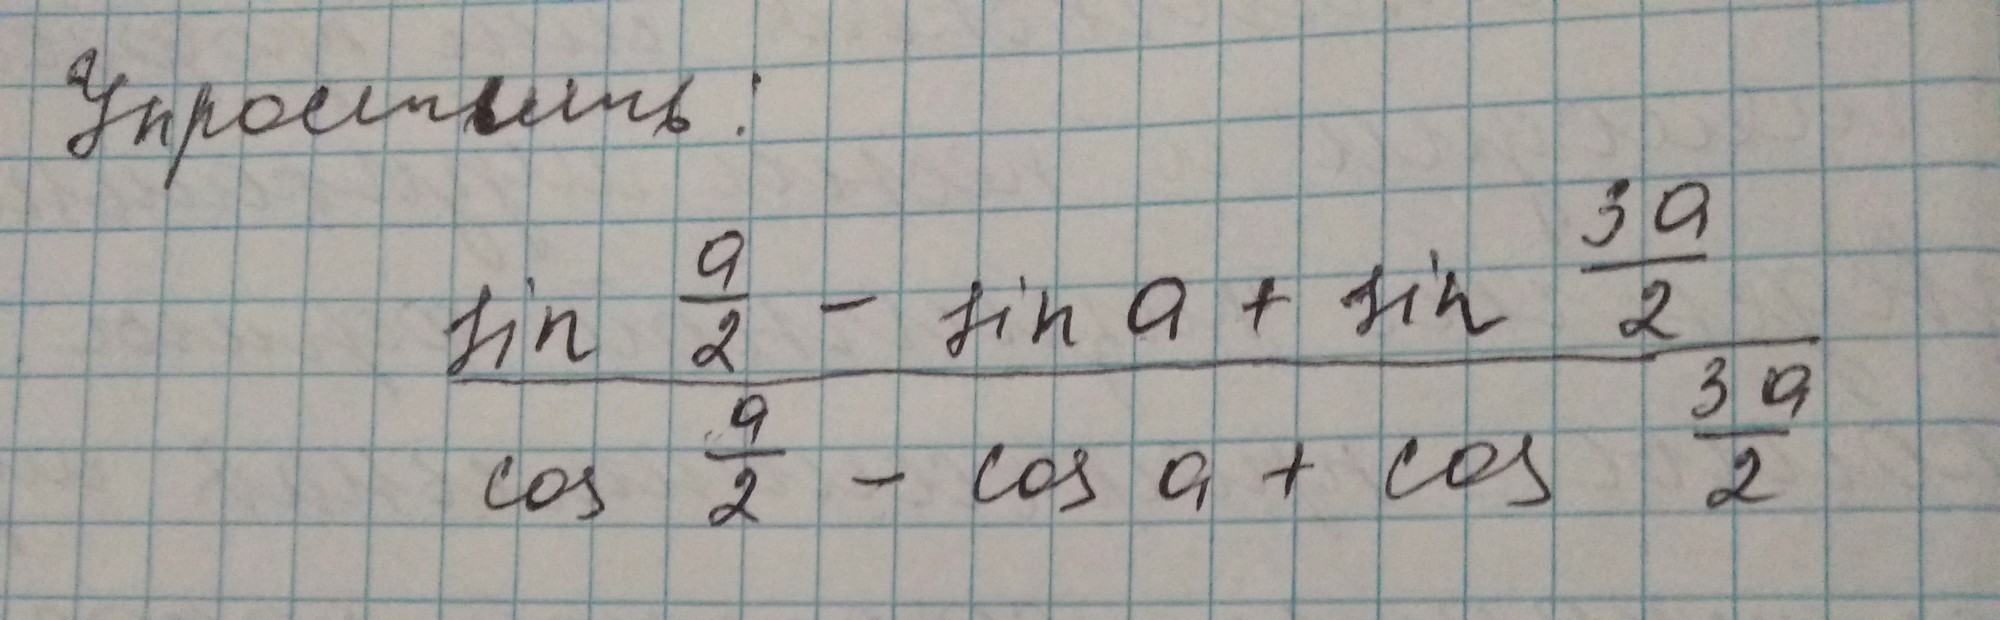 Упростить:
sin a/2 - sin a + sin 3a/2
cos a/2 - cos a + cos 3a/2